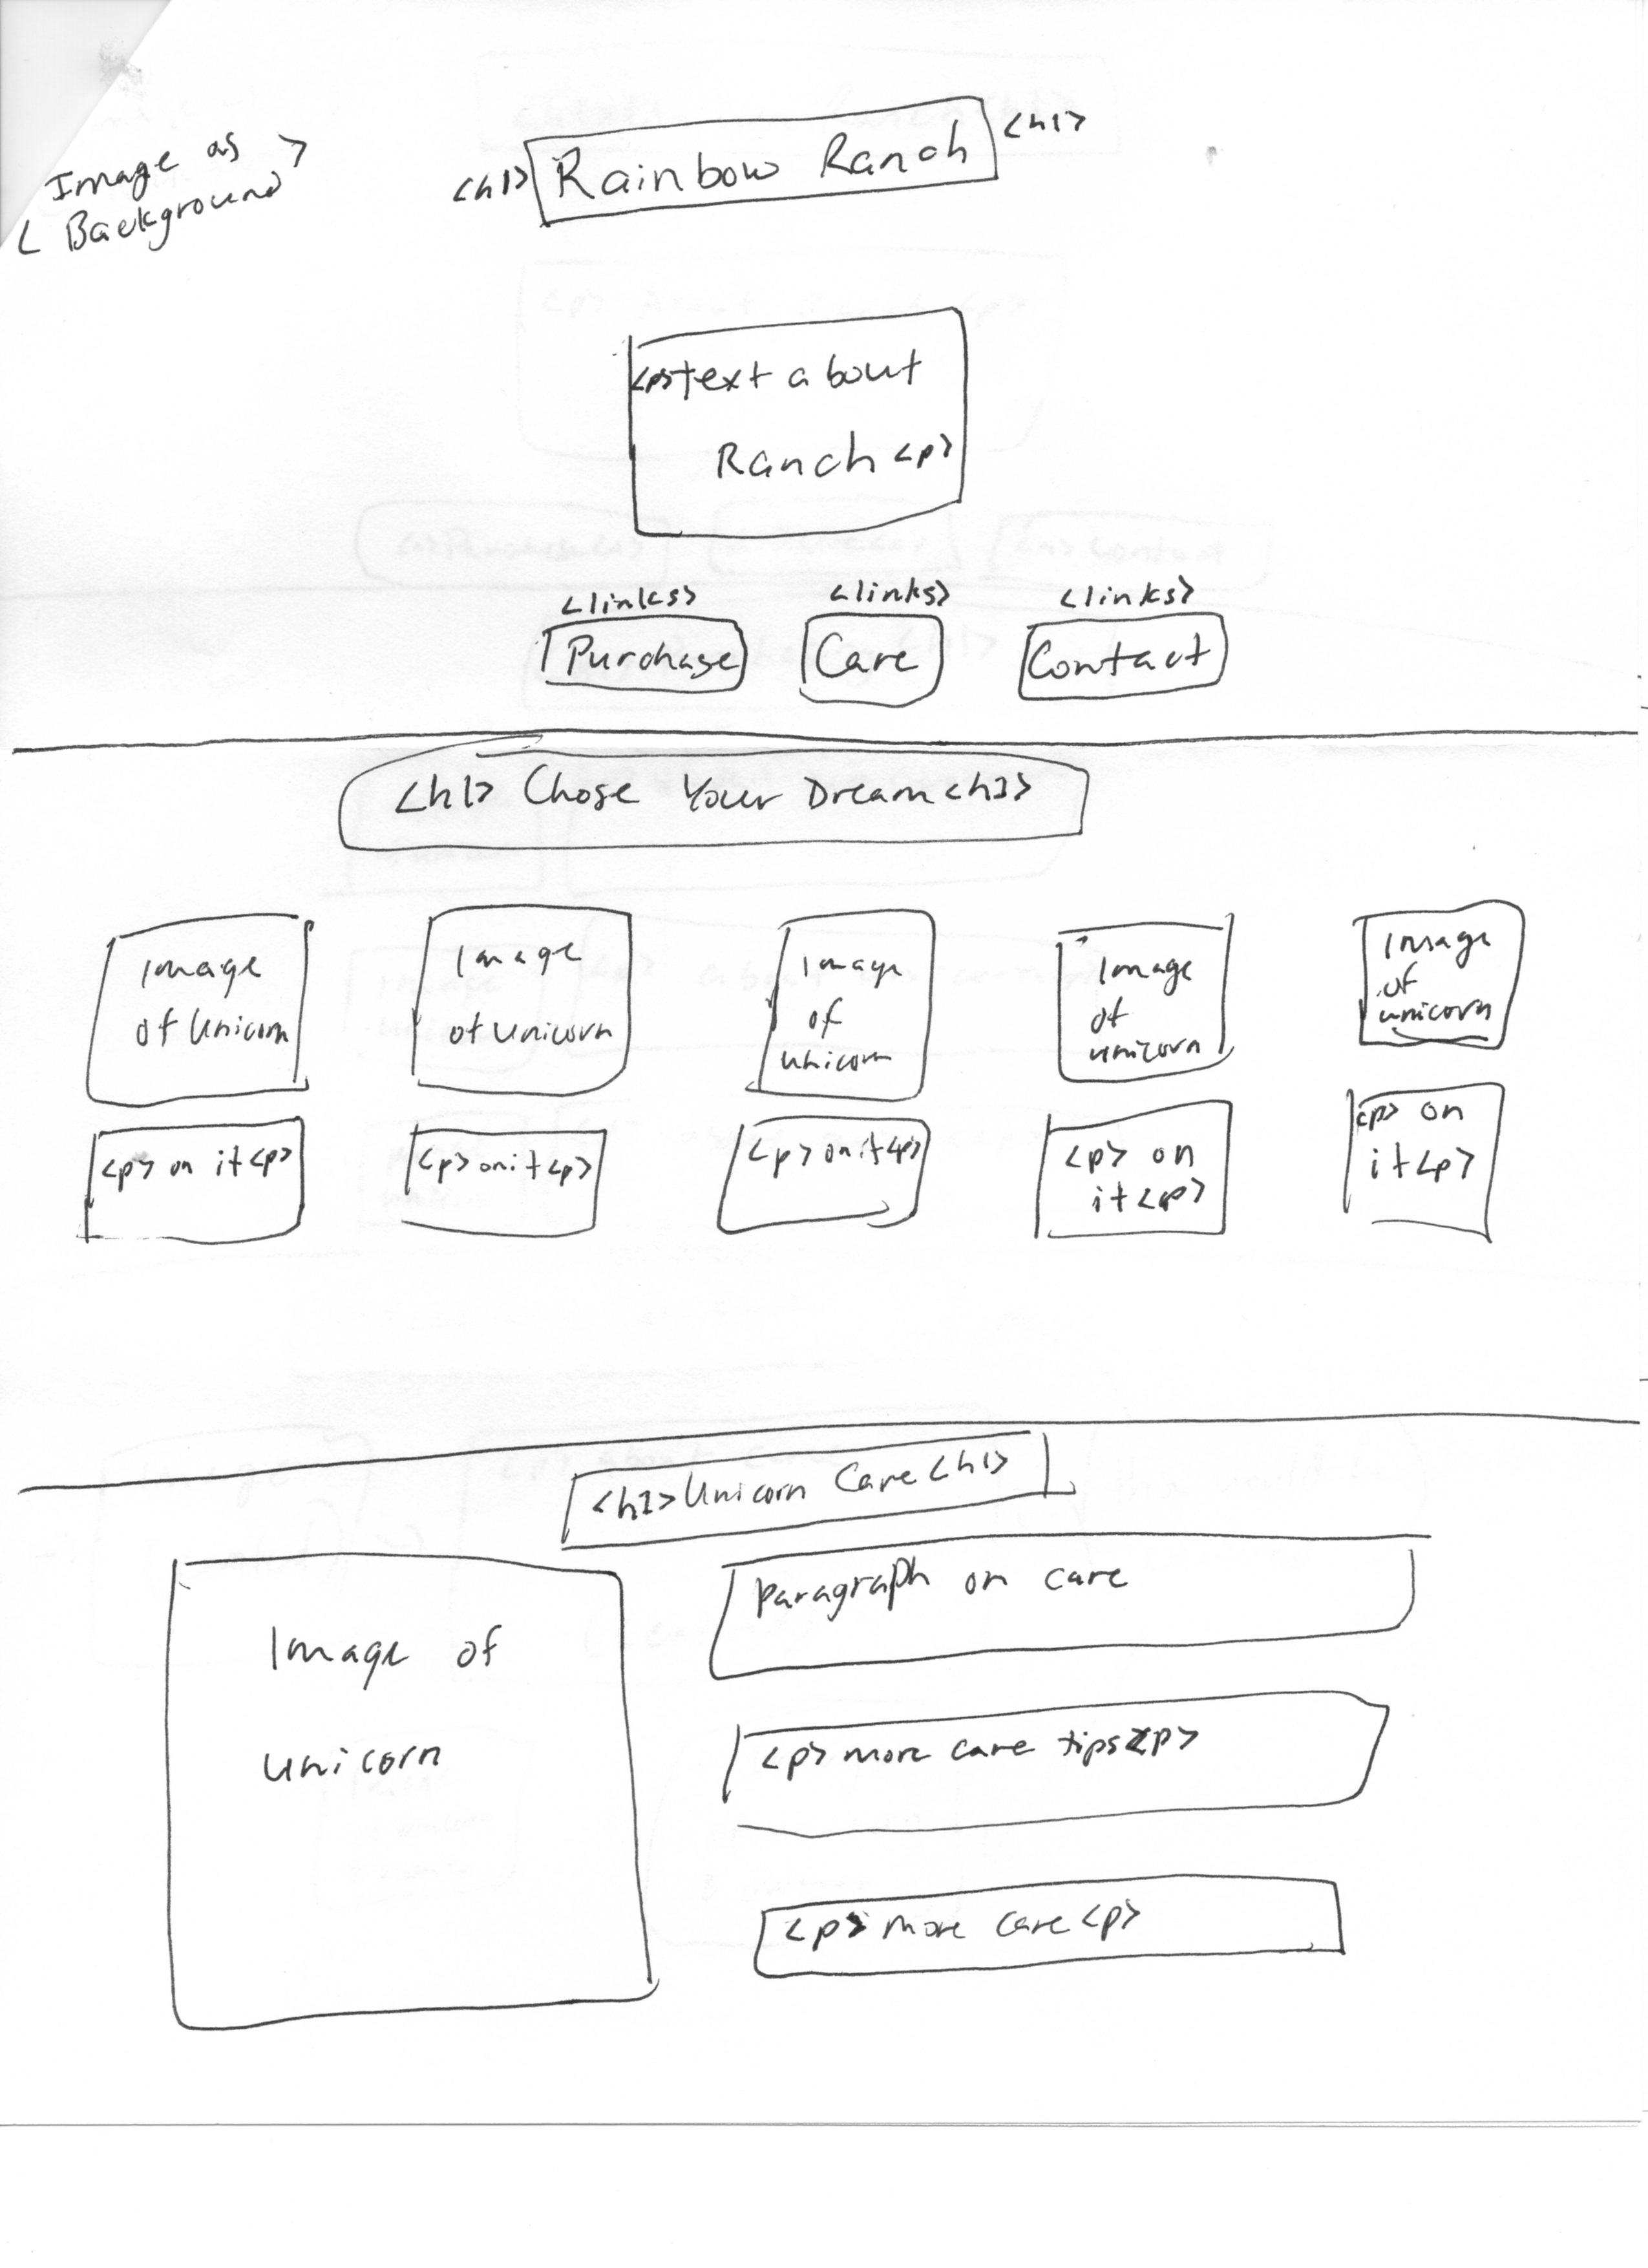 Image as >
< Background
<h1> Rainbow Ranch <h1>
<p> text about
Ranch <p>
<links> <links> <links>
Purchase Care Contact
<h1> Chose Your Dream <h1>
Image
of Unicorn
Image
of unicorn
Image
of
unicorn
Image
of
unicorn
Image
of
unicorn
<p> on it <p>
<p> on it <p>
<p> on it <p>
<p> on
it <p>
<p> on
it <p>
<h1> Unicorn Care <h1>
Image of
unicorn
Paragraph on care
<p> more care tips <p>
<p> more care <p>